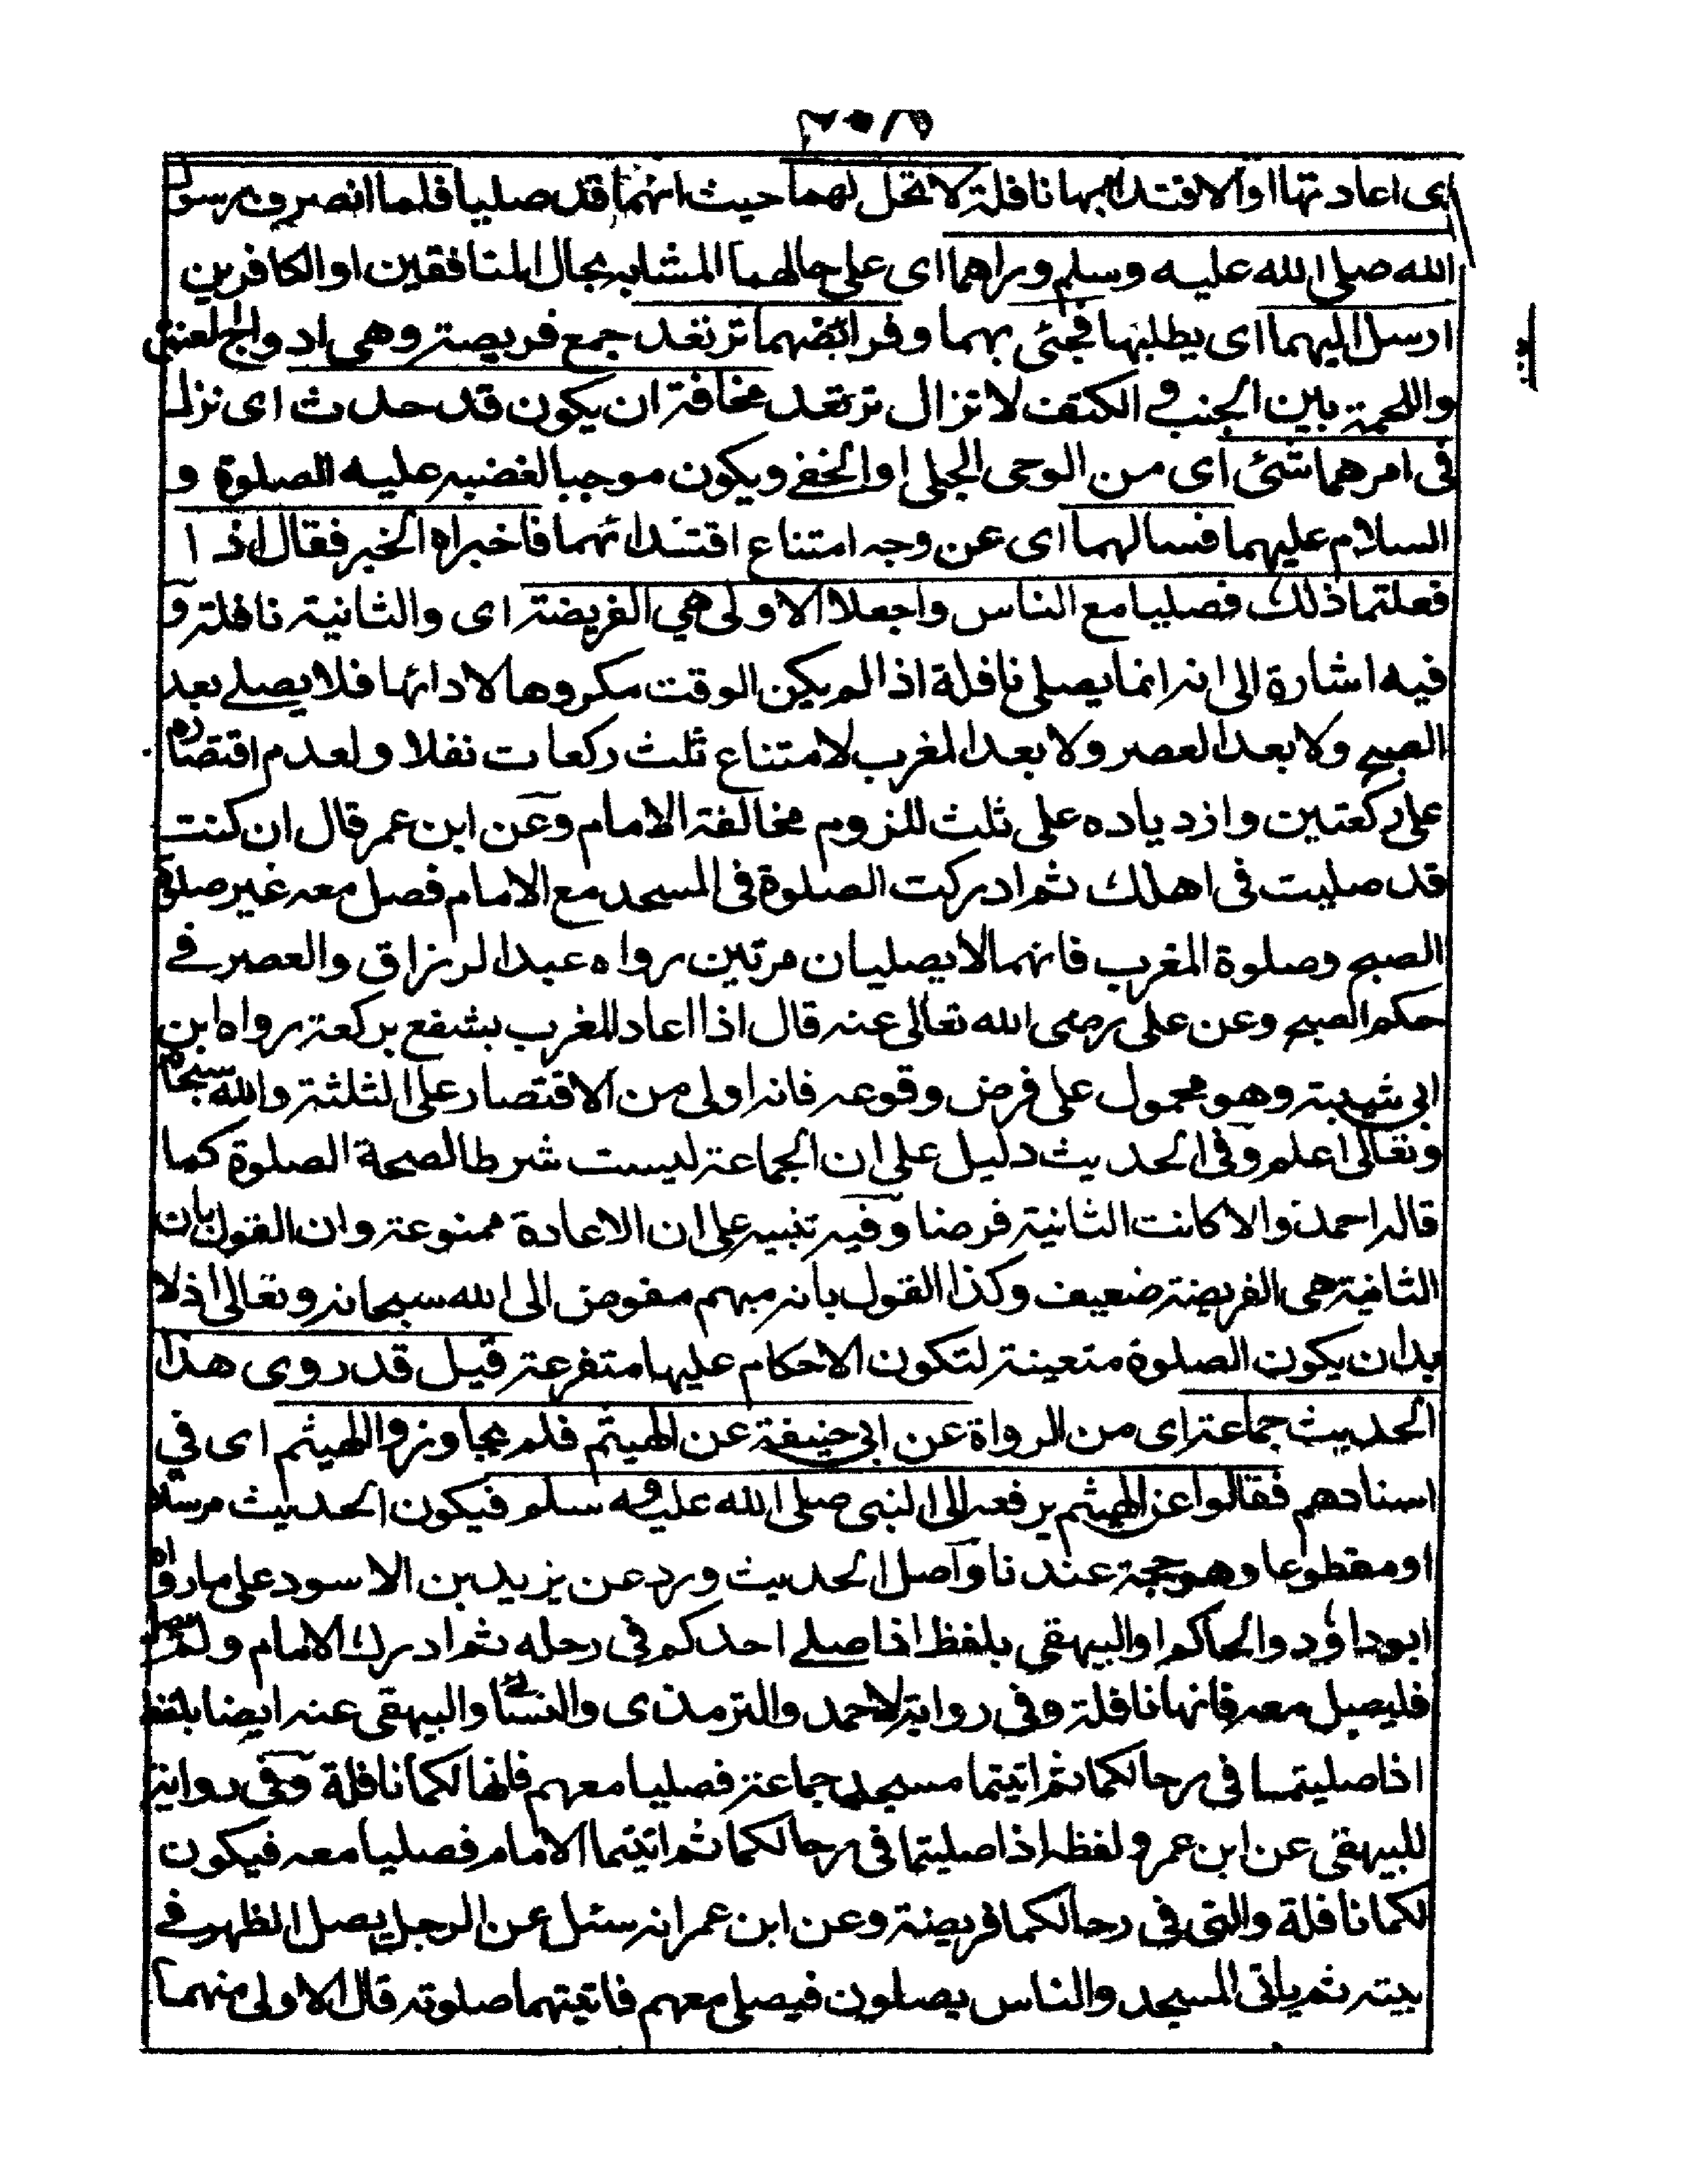 اى اعادتها او الاقتداء بها نافلة لا تحل لهما حيث انهما قد صليا فلما انصرف رسول
الله صلى الله عليه وسلم وراهما اى على حالهما المشابه بحال المنافقين او الكافرين
ارسل اليهما اى يطلبهما فجئى بهما وفرائضهما ترتعد جمع فريصة وهى اد واج العنق
واللحمة بين الجنب فى الكتف لا تزال ترتعد مخافة ان يكون قد حدث اى نزل
فى امرهما شئى اى من الوحى الجلى او الخفى ويكون موجبا لغضبه عليه الصلوة و
السلام عليهما فسالهما اى عن وجه امتناع اقتدائهما فاخبراه الخبر فقال اذ ا
فعلتما ذلك فصليا مع الناس واجعلا الاولى هي الفريضة اى والثانية نافلة و
فيه اشارة الى انه انما يصلى نافلة اذا لم يكن الوقت مكروها لادائها فلا يصلى بعد
الصبح ولا بعد العصر ولا بعد المغرب لامتناع ثلث ركعات نفلا ولعدم اقتصاره
على ركعتين وازدياده على ثلث للزوم مخالفة الامام وعن ابن عمر قال ان كنت
قد صليت فى اهلك ثم ادركت الصلوة فى المسجد مع الامام فصل معه غير صلوة
الصبح وصلوة المغرب فانهما لا يصليان مرتين رواه عبد الرزاق والعصر فى
حكم الصبح وعن على رضى الله تعالى عنه قال اذا اعاد المغرب يشفع بركعة رواه ابن
ابى شيبة وهو محمول على فرض وقوعه فانه اولى من الاقتصار على الثلثة والله سبحانه
وتعالى اعلم وفى الحديث دليل على ان الجماعة ليست شرطا لصحة الصلوة كما
قاله احمد والا كانت الثانية فرضا وفيه تنبيه على ان الاعادة ممنوعة وان القول بان
الثانية هى الفريضة ضعيف وكذا القول بانه مبهم مفوض الى الله سبحانه وتعالى اذ لا
بد ان يكون الصلوة متعينة لتكون الاحكام عليها متفرعة قيل قد روى هذا
الحديث جماعة اى من الرواة عن ابى حنيفة عن الهيثم فلم يجاوزوا الهيثم اى في
اسنادهم فقالوا عن الهيثم يرفعه الى النبى صلى الله عليه وسلم فيكون الحديث مرسلا
او مقطوعا وهو حجة عندنا واصل الحديث ورد عن يزيد بن الاسود على ما رواه
ابوداود والحاكم والبيهقى بلفظ اذا صلى احدكم فى رحله ثم ادرك الامام ولم يصل
فليصل معه فانها نافلة وفى رواية لاحمد والترمذى والنسائى والبيهقى عنه ايضا بلفظ
اذا صليتما فى رحالكما ثم اتيتما مسجد جماعة فصليا معهم فانها لكما نافلة وفى رواية
للبيهقى عن ابن عمرو لفظه اذا صليتما فى رحالكما ثم اتيتما الامام فصليا معه فيكون
لكما نافلة والتى فى رحالكما فريضة وعن ابن عمر انه سئل عن الرجل يصل الظهر فى
بيته ثم ياتى المسجد والناس يصلون فيصلى معهم فايتهما صلوته قال الاولى منهما